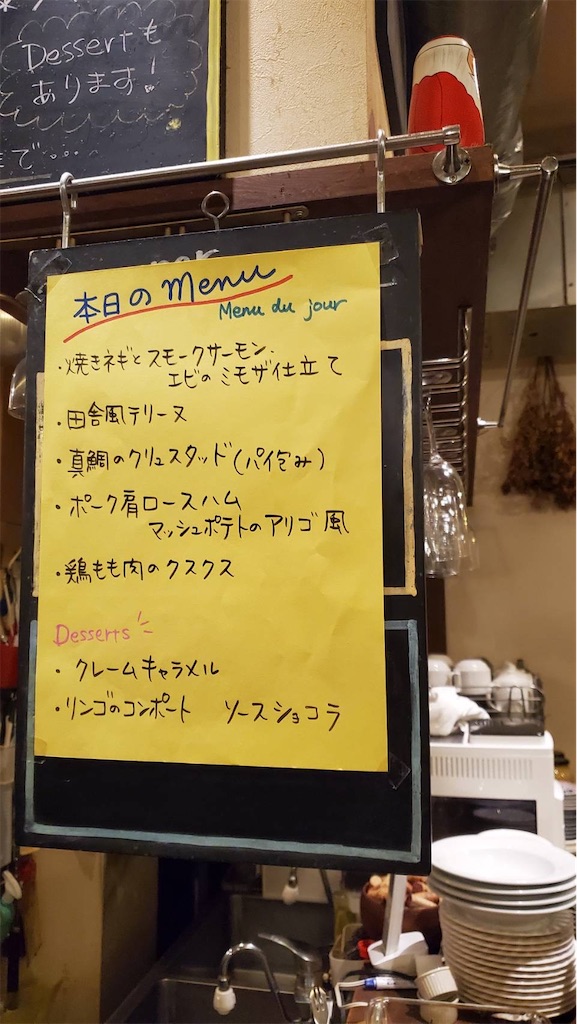 Dessertも
あります!
で...
本日のmenu
Menu du jour
・焼きネギとスモークサーモン、
エビのミモザ仕立て
・田舎風テリーヌ
・真鯛のクリュスタッド(パイ包み)
・ポーク肩ロースハム
マッシュポテトのアリゴ風
・鶏もも肉のクスクス
Desserts
・クレームキャラメル
・リンゴのコンポート ソースショコラ